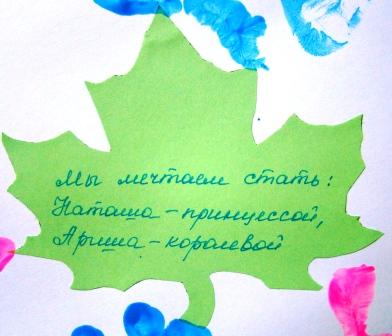 Мы мечтаем стать:
Наташа – принцессой,
Ариша – королевой